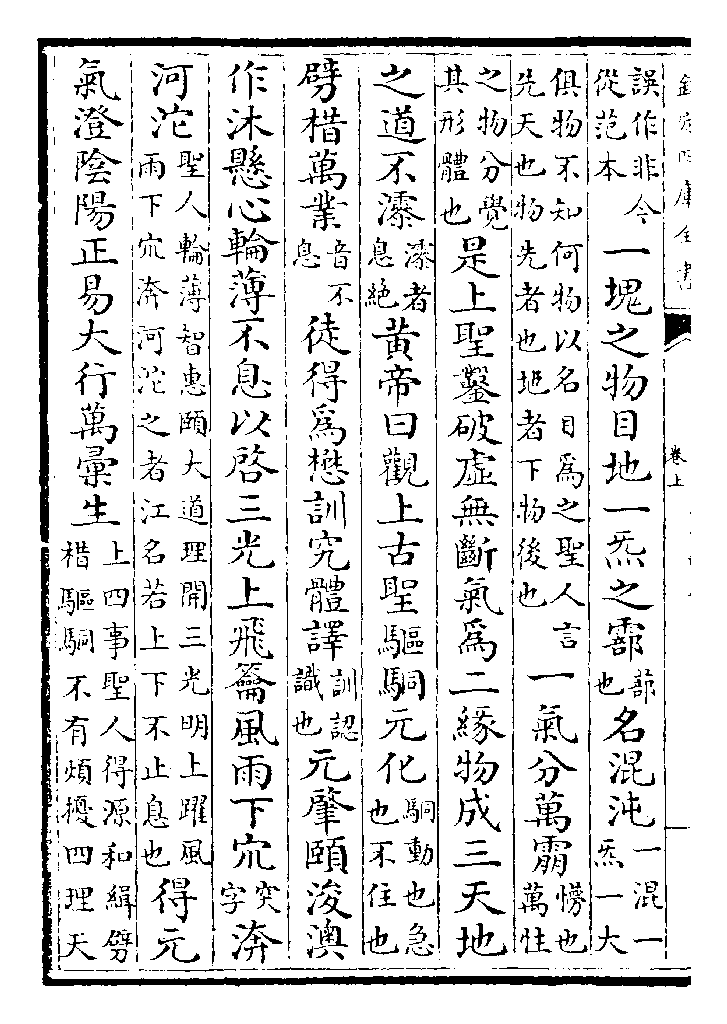 欽定四庫全書
卷上
誤作非今從范本一塊之物目地一炁之霩也名混沌一混一炁一大
俱物不知何物以名目為之聖人言先天也物先者也地者下物後也一氣分萬㦬也萬性
之物分覺其形體也是上聖鑿破虛無斷氣為二緣物成三天地
之道不㵠㵠者息絶黃帝曰觀上古聖驅駧元化駧動也急也不住也
劈楷萬業音不息徒得為懋訓究體譯訓認識也元肇頤浚澳
作沐懸心輪薄不息以啓三光上飛籥風雨下穴突字渀
河沱聖人輪薄智惠頤大道理開三光明上躍風雨下穴奔河沱之者江名若上下不止息也得元
氣澄陰陽正易大行萬彙生上四事聖人得源和緝劈楷驅駧不有煩擾四理天